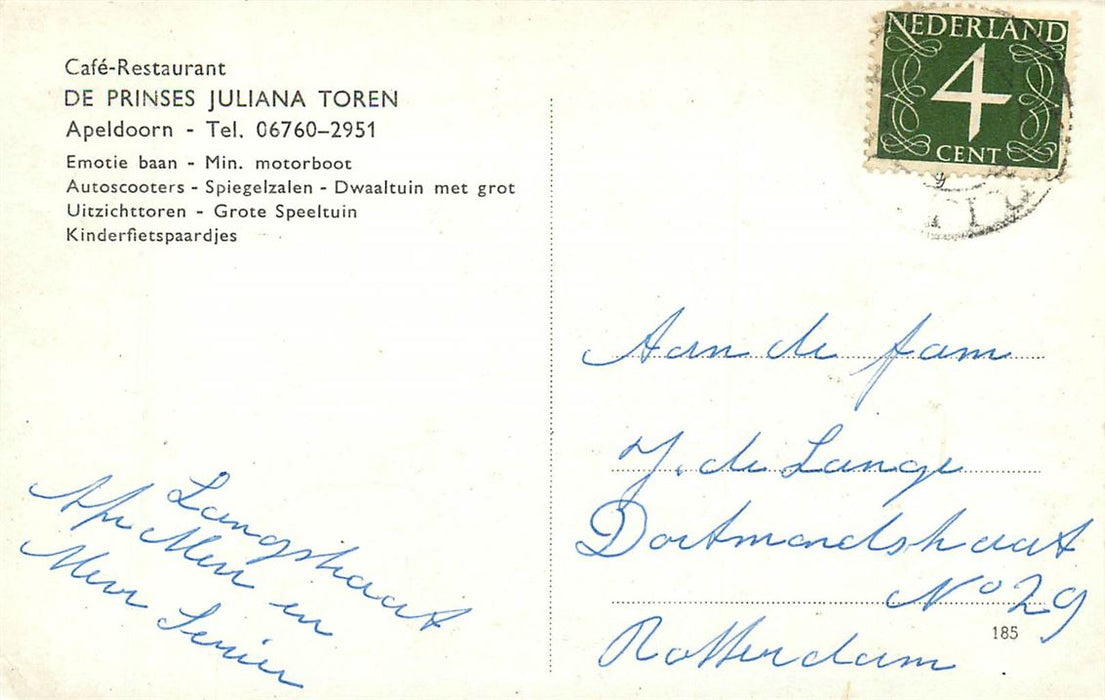 Café-Restaurant
DE PRINSES JULIANA TOREN
Apeldoorn - Tel. 06760-2951
Emotie baan - Min. motorboot
Autoscooters - Spiegelzalen - Dwaaltuin met grot
Uitzichttoren - Grote Speeltuin
Kinderfietspaardjes
NEDERLAND
4
CENT
Aan de fam
J. de Lange
Dortmondstraat
No 29
Rotterdam
185
Langstraat
Afz Mevr en
Senier